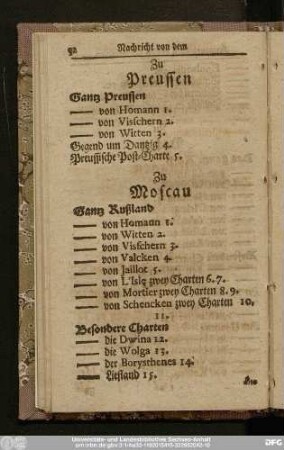 92 Nachricht von dem
Zu
Preussen
Gantz Preussen
—— von Homann 1.
—— von Visschern 2.
—— von Witten 3.
Gegend um Dantzig 4.
Preußische Post-Charte 5.
Zu
Moscau
Gantz Rußland
—— von Homann 1.
—— von Witten 2.
—— von Visschern 3.
—— von Valcken 4.
—— von Jaillot 5.
—— von L'Isle zwey Charten 6. 7.
—— von Mortier zwey Charten 8. 9.
—— von Schencken zwey Charten 10.
11.
Besondere Charten
—— die Dwina 12.
—— die Wolga 13.
—— der Borysthenes 14.
—— Liefland 15.
Universitäts- und Landesbibliothek Sachsen-Anhalt
DFG